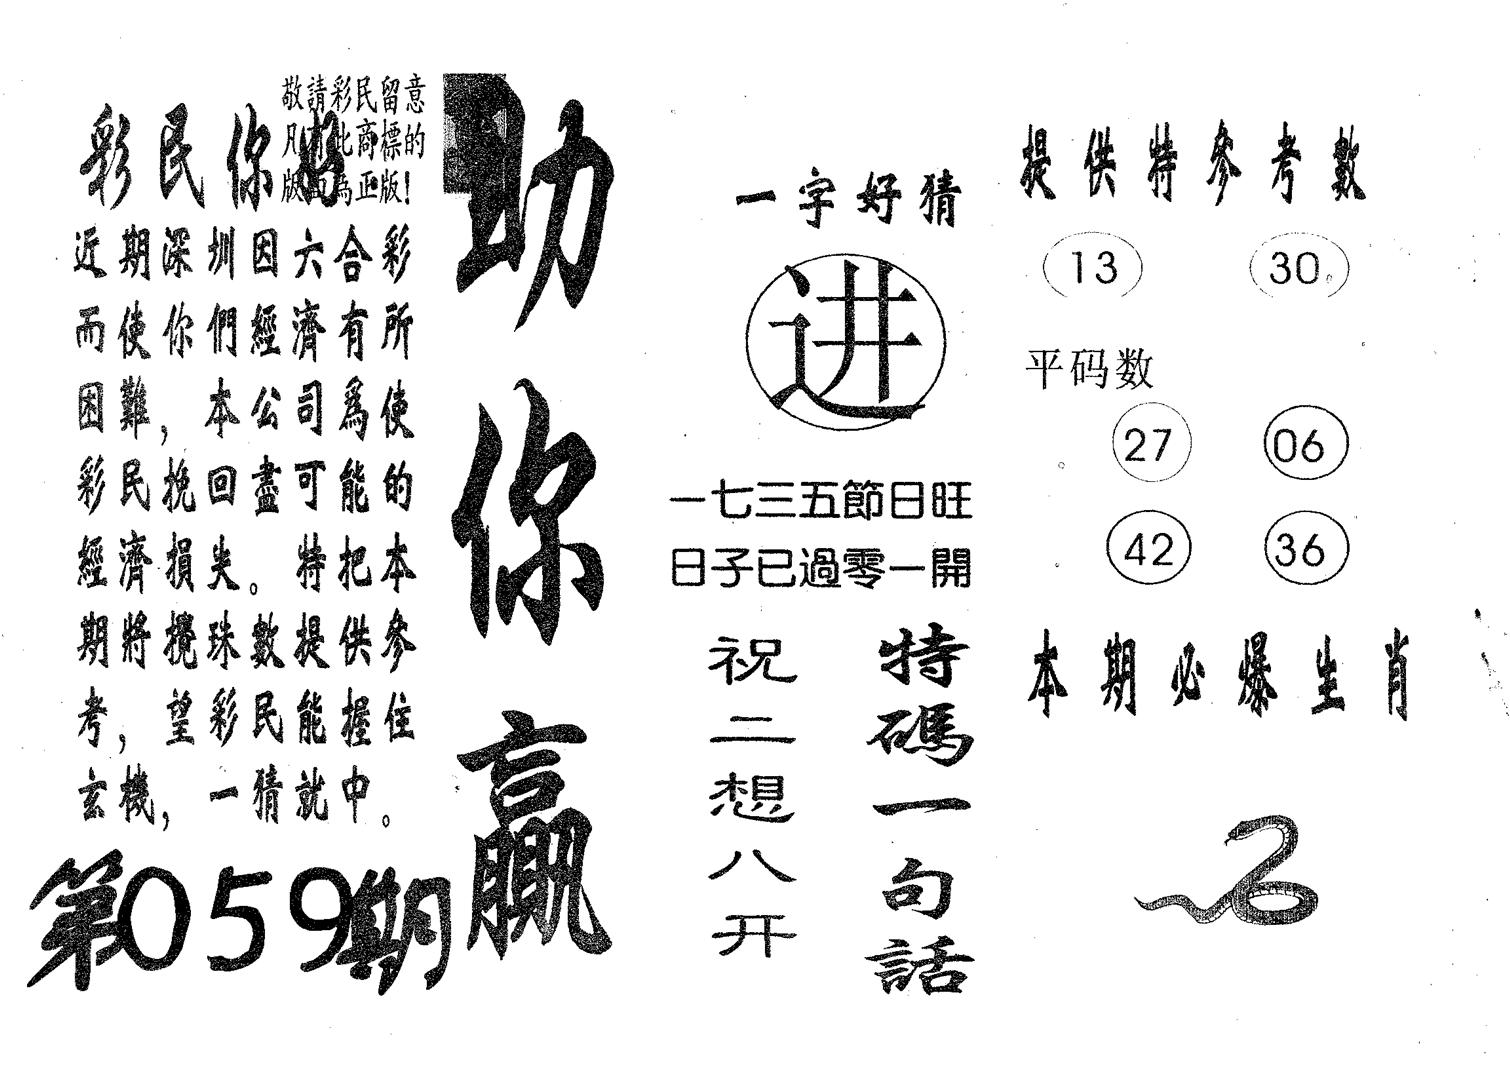 敬請彩民留意
凡有此商標的
版面為正版!
彩民你好
近期深圳因六合彩
而使你們經濟有所
困難，本公司爲使
彩民挽回盡可能的
經濟損失。特把本
期將攪珠數提供參
考，望彩民能握住
玄機，一猜就中。
第059期
助你贏
一字好猜
进
一七三五節日旺
日子已過零一開
特碼一句話
祝二想八开
提供特參考數
13 30
平码数
27 06
42 36
本期必爆生肖